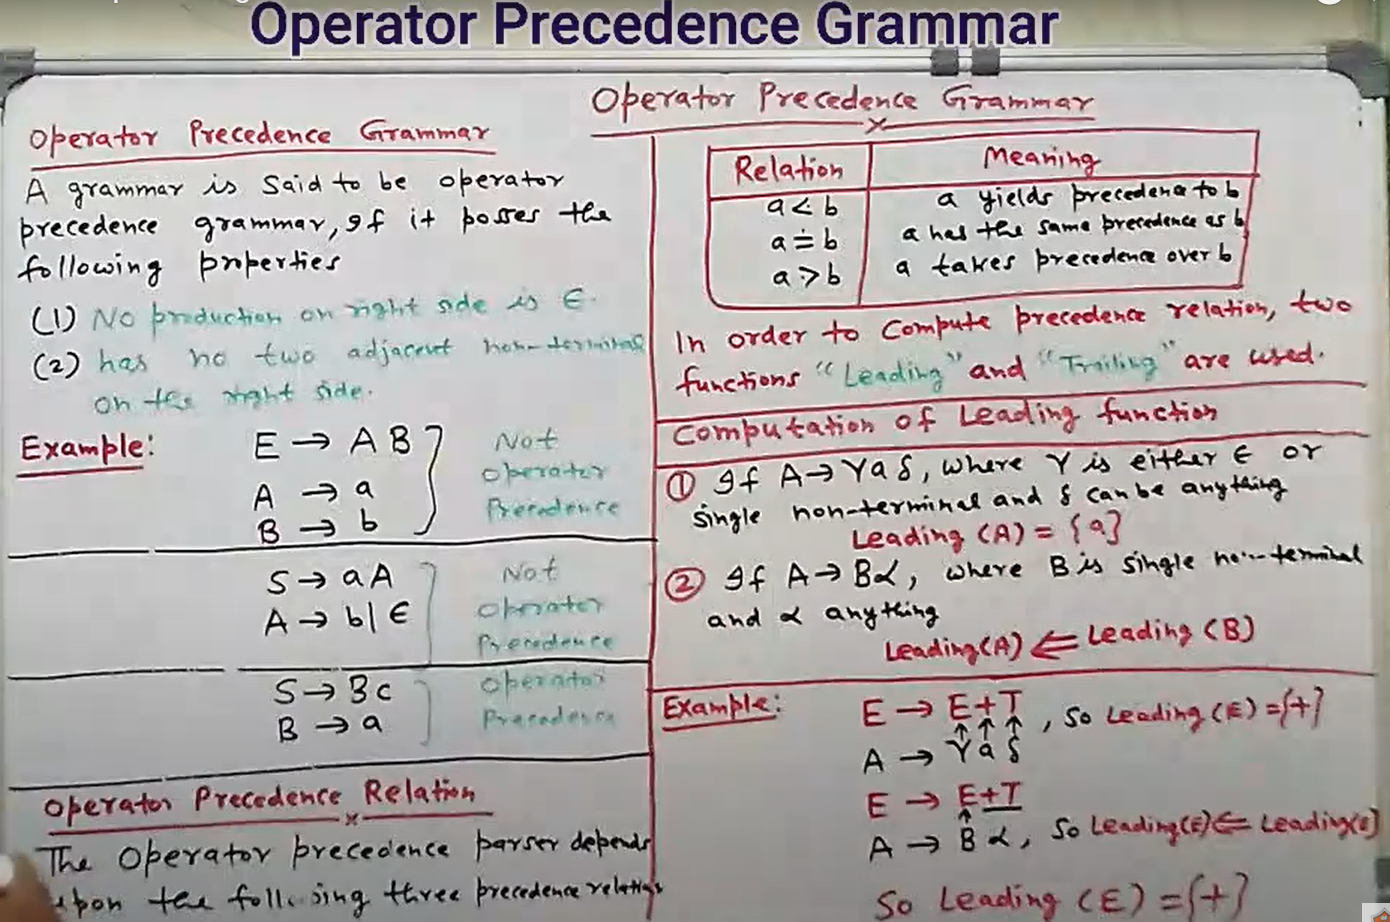 Operator Precedence Grammar
Operator Precedence Grammar
Operator Precedence Grammar
A grammar is said to be operator
precedence grammar, If it posses the
following properties
(1) No production on right side is ∈.
(2) has no two adjacent non-terminals
on the right side.
Example:
E → A B
A → a
B → b
Not
operator
Precedence
S → a A
A → b | ∈
Not
operator
Precedence
S → B c
B → a
operator
Precedence
Operator Precedence Relation
The Operator precedence parser depends
upon the following three precedence relations
Relation Meaning
a <· b a yields precedence to b
a ≐ b a has the same precedence as b
a ·> b a takes precedence over b
In order to Compute precedence relation, two
functions "Leading" and "Trailing" are used.
Computation of Leading function
① If A → γ a δ, where γ is either ∈ or
single non-terminal and δ can be anything
Leading (A) = {a}
② If A → B α, where B is single non-terminal
and α anything
Leading(A) ⇐ Leading (B)
Example:
E → E + T, So Leading (E) = {+}
A → γ a δ
E → E + T
A → B α, So Leading(E) ⇐ Leading(E)
So Leading (E) = {+}